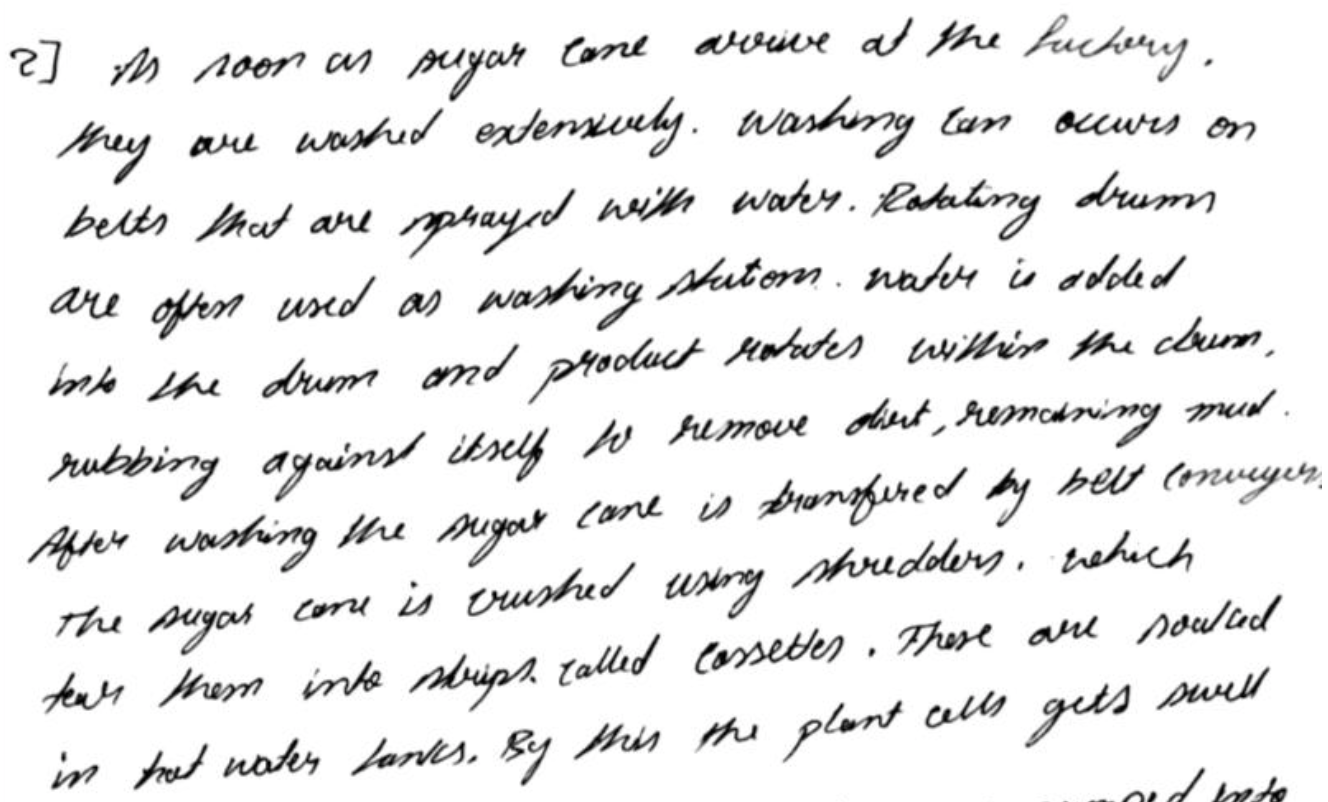 2] As soon as sugar cane arrive at the factory.
they are washed extensively. washing can occurs on
belts that are sprayed with water. Rotating drums
are often used as washing stations. water is added
into the drum and product rotates within the drum,
rubbing against itself to remove dirt, remaining mud.
After washing the sugar cane is transfered by belt conveyers
The sugar cane is crushed using shredders. which
tear them into strips. called cossettes. These are soaked
in hot water tanks. By this the plant cells gets swell
into